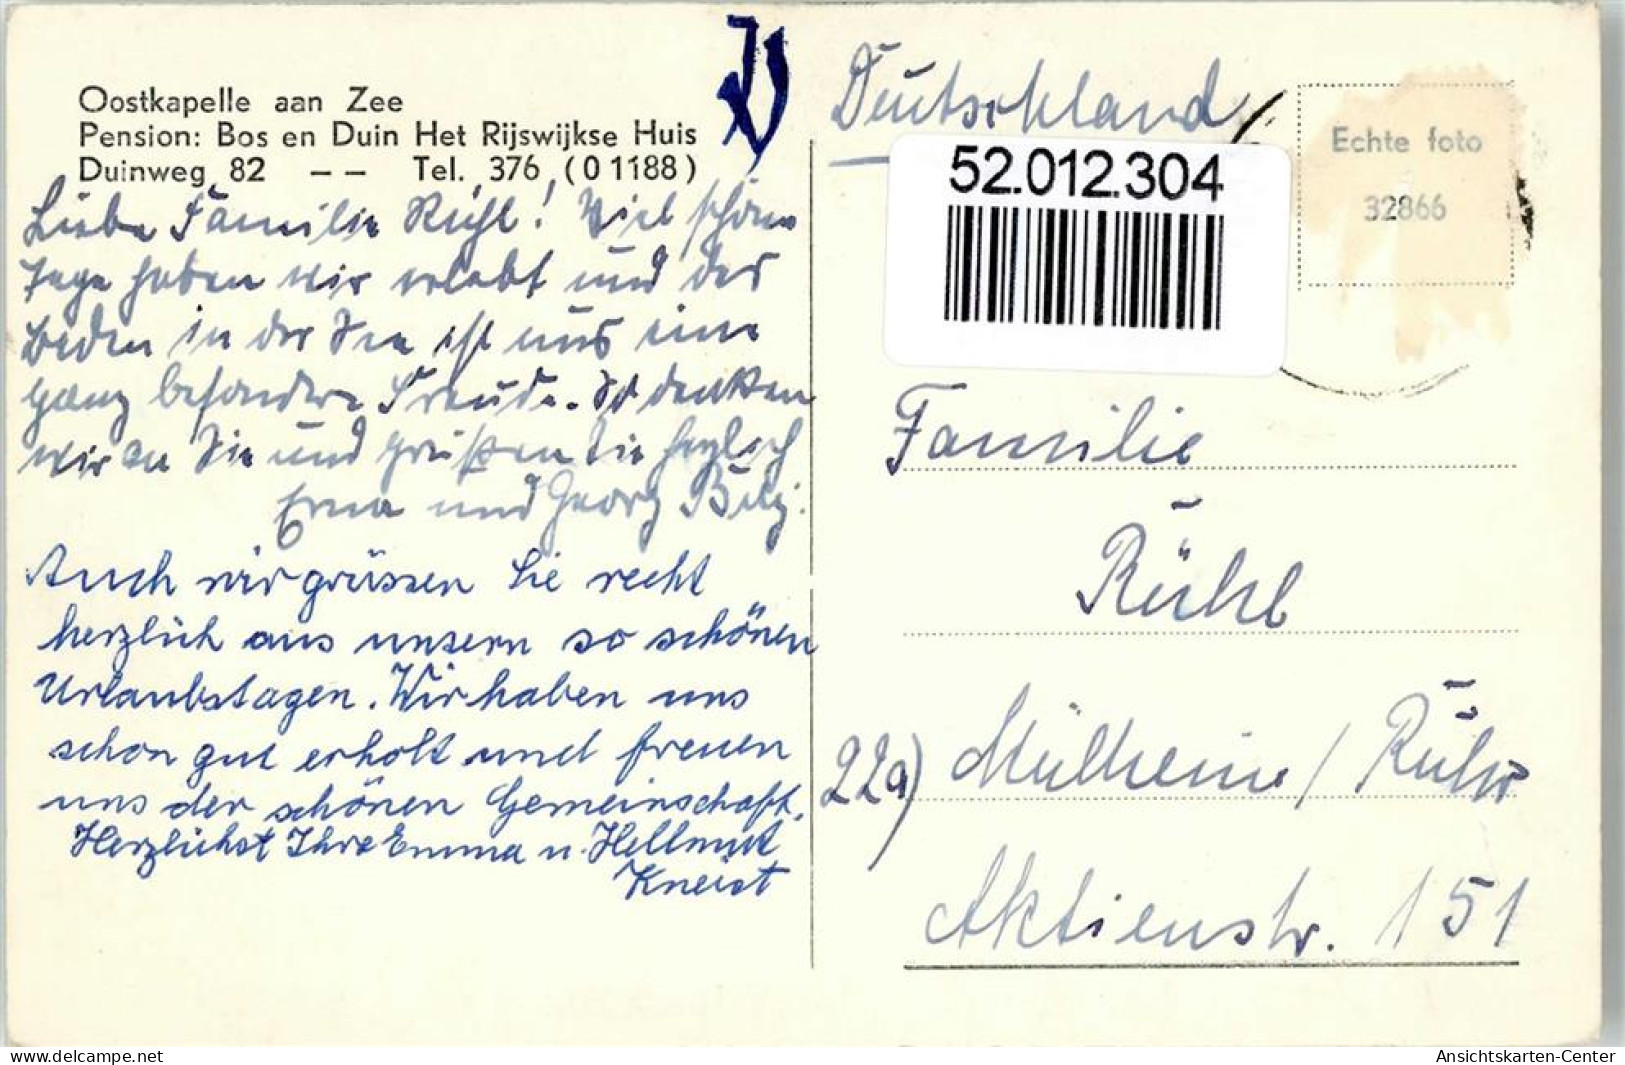 Oostkapelle aan Zee
Pension: Bos en Duin Het Rijswijkse Huis
Duinweg 82 -- Tel. 376 (01188)
Liebe Familie Rühl! Viel schöne
Tage haben wir erlebt und das
Baden in der See ist uns eine
ganz besondere Freude. So denken
wir an Sie und grüßen Sie herzlich
Erna und Georg
Auch wir grüssen Sie recht
herzlich aus unsern so schönen
Urlaubstagen. Wir haben uns
schon gut erholt und freuen
uns der schönen Gemeinschaft.
Herzlichst Ihre Emma u. Hellmut
Kneist
Deutschland
52.012.304
Echte foto
32866
Familie
Rühl
22a) Mülheim / Ruhr
Aktienstr. 151
oldthing.de
www.ehso.com
Ansichtskarten-Center